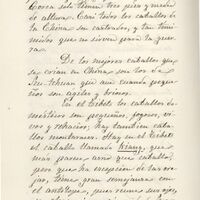 Corea solo tienen tres pies y medio
de altura. Casi todos los caballos de
la China son castrados, y tan timi-
midos que no sirven para la guer-
ra.
De los mejores caballos que
se crian en China son los de
Su-tchuen que aun cuando peque-
ños son agiles y briosos.
En el Tibet los caballos de
montaña son pequeños, fogosos, vi-
vos y rehacios; hay tambien caba-
llos monteses. Hay en el Tibet
el caballo llamado Kiang, que
mas parece asno que caballo,
pero que ha escepcion de las ore-
jas, tiene gran semejanza con
el antilope, pues reune sus ojos,